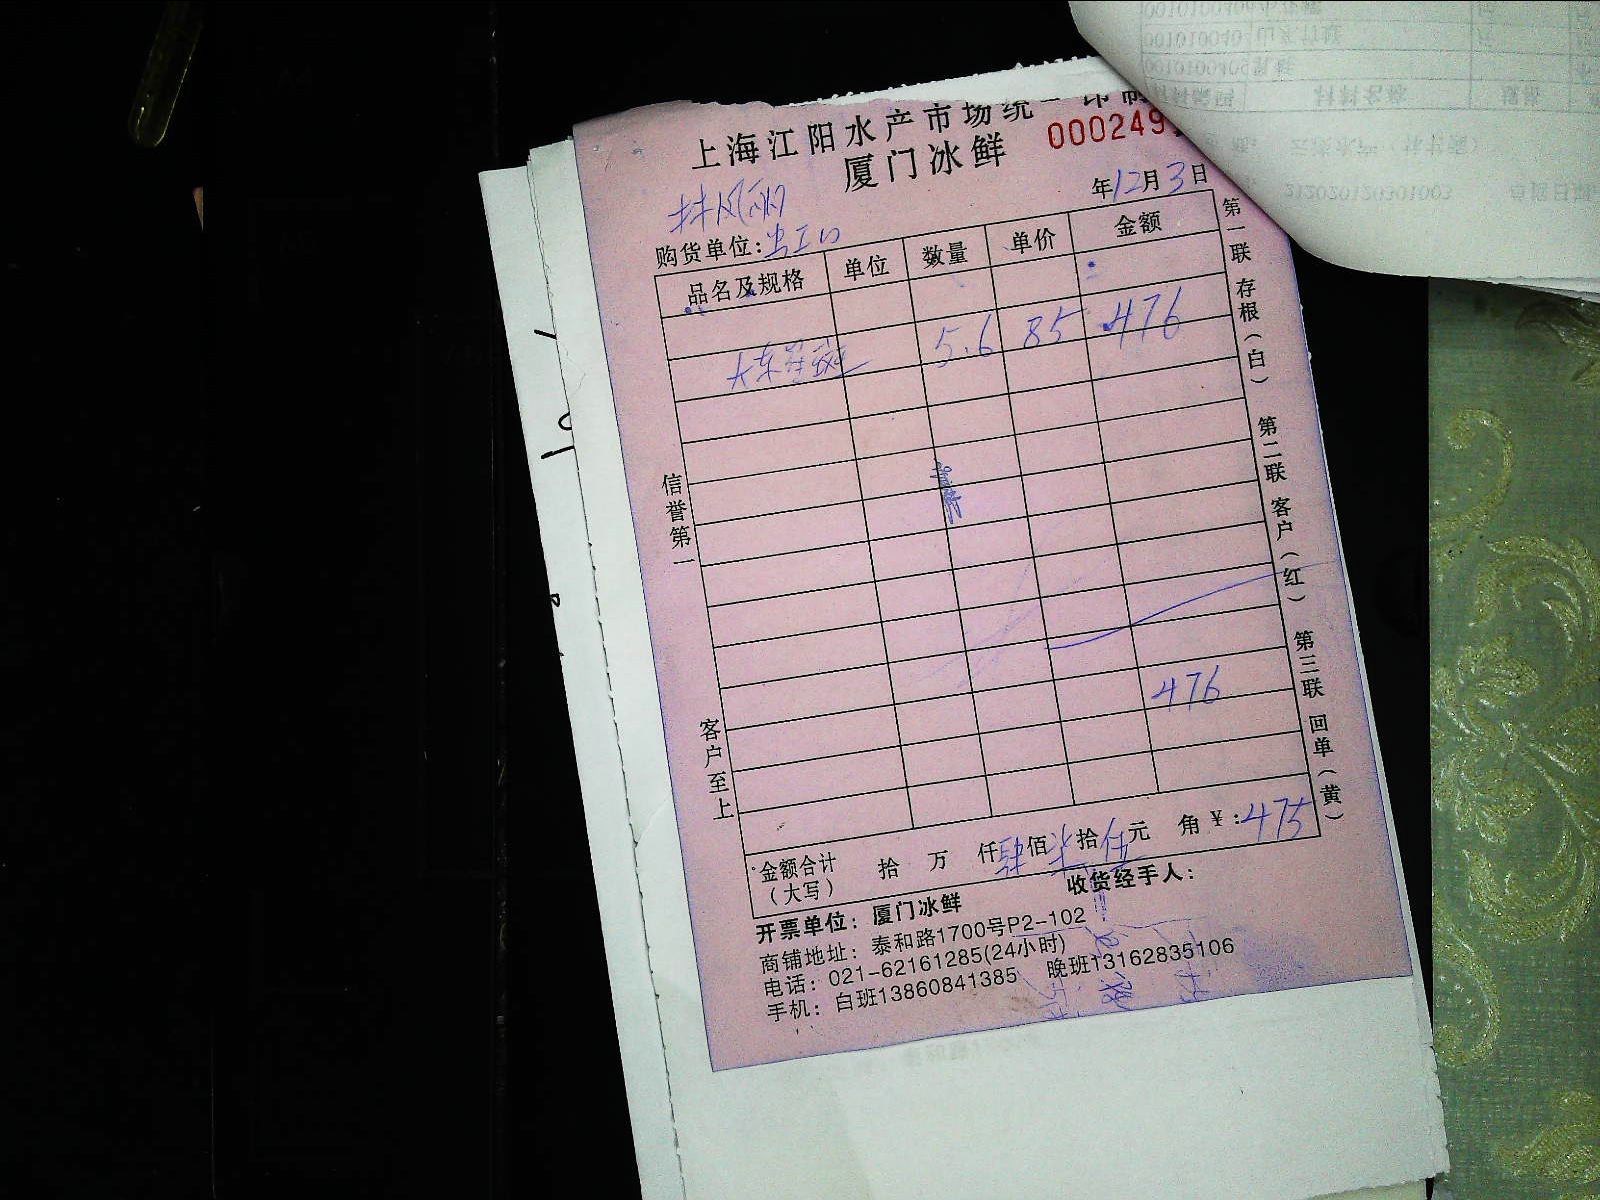 上海江阳水产市场统一印制
厦门冰鲜
000249
年12月3日
林凤丽
购货单位:
品名及规格 单位 数量 单价 金额
大东星斑 5.6 85 476
476
金额合计（大写） 拾 万 仟肆佰柒拾伍元 角 ¥:475
收货经手人:
开票单位: 厦门冰鲜
商铺地址: 泰和路1700号P2-102
电话: 021-62161285(24小时)
手机: 白班13860841385 晚班13162835106
信誉第一
客户至上
第一联 存根（白） 第二联 客户（红） 第三联 回单（黄）